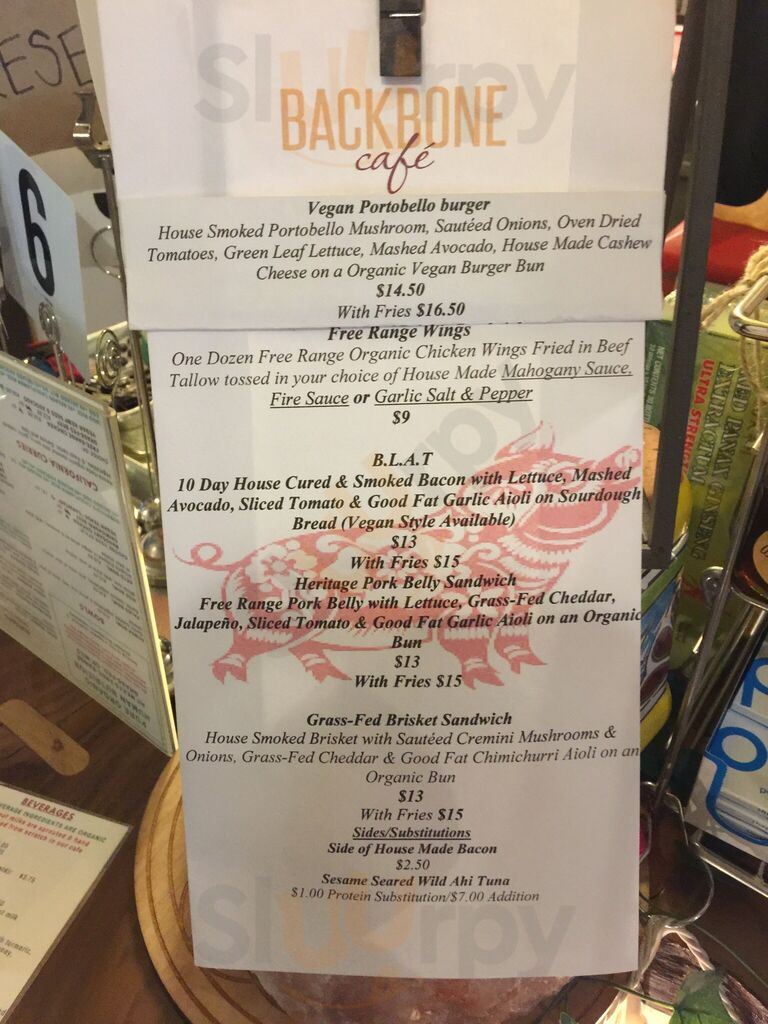 ESE
Slurrpy
BACKBONE
café
Vegan Portobello burger
House Smoked Portobello Mushroom, Sautéed Onions, Oven Dried
Tomatoes, Green Leaf Lettuce, Mashed Avocado, House Made Cashew
Cheese on a Organic Vegan Burger Bun
$14.50
With Fries $16.50
Free Range Wings
One Dozen Free Range Organic Chicken Wings Fried in Beef
Tallow tossed in your choice of House Made Mahogany Sauce,
Fire Sauce or Garlic Salt & Pepper
$9
B.L.A.T
10 Day House Cured & Smoked Bacon with Lettuce, Mashed
Avocado, Sliced Tomato & Good Fat Garlic Aioli on Sourdough
Bread (Vegan Style Available)
$13
With Fries $15
Heritage Pork Belly Sandwich
Free Range Pork Belly with Lettuce, Grass-Fed Cheddar,
Jalapeño, Sliced Tomato & Good Fat Garlic Aioli on an Organic
Bun
$13
With Fries $15
Grass-Fed Brisket Sandwich
House Smoked Brisket with Sautéed Cremini Mushrooms &
Onions, Grass-Fed Cheddar & Good Fat Chimichurri Aioli on an
Organic Bun
$13
With Fries $15
Sides/Substitutions
Side of House Made Bacon
$2.50
Sesame Seared Wild Ahi Tuna
$1.00 Protein Substitution/$7.00 Addition
Slurrpy
6
CALIFORNIA CURRIES
BOWLS
BEVERAGES
ERAGE INGREDIENTS ARE ORGANIC
from scratch in our cafe
$3.75
milk
turmeric,
ULTRA STRENGTH
RED PANAX GINSENG
EXTRACTUM